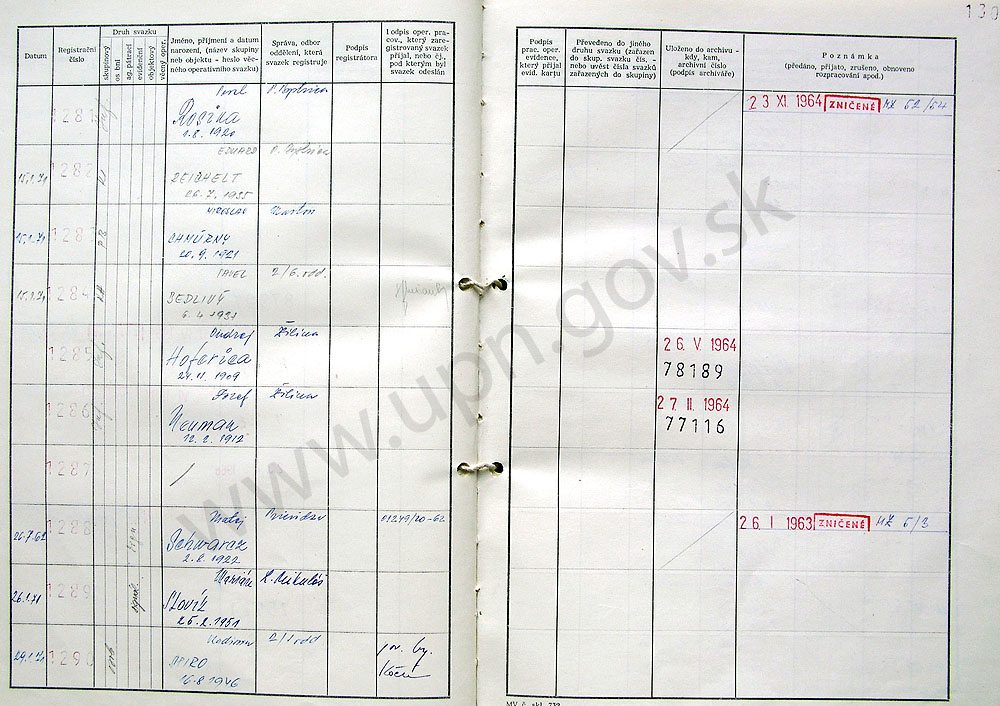 130
Datum
Registrační číslo
Druh svazku
skupinový
osobní
ag. pátrací
evidenční
objektový
věcný oper.
Jméno, příjmení a datum
narození, (název skupiny
neb objektu - heslo věc-
ného operativního svazku)
Správa, odbor
oddělení, která
svazek registruje
Podpis
registrátora
Podpis oper. pra-
cov., který zare-
gistrovaný svazek
přijal, nebo čj.,
pod kterým byl
svazek odeslán
Podpis
prac. oper.
evidence,
který přijal
evid. kartu
Převedeno do jiného
druhu svazku (zařazen
do skup. svazku čís. -
nebo uvést čísla svazků
zařazených do skupiny)
Uloženo do archivu -
kdy, kam,
archivní číslo
(podpis archiváře)
Poznámka
(předáno, přijato, zrušeno, obnoveno
rozpracování apod.)
1281
1.8. 1920
23 XI. 1964 ZNIČENÉ 52/54
15.1.71 1282 EDUARD
REICHELT
26.7. 1935
15.1.71 1283 MIROSLAV Martin
CHMÚRNY
20.9. 1921
15.1.71 1284 PAVEL 2/6. odd.
SEDLIVÝ
6.4. 1931
1285 Ondrej Žilina
24.11. 1909
26. V 1964
78189
1286 Jozef Žilina
Neuman
12.2. 1912
27. II 1964
77116
1287 /
26.7.62 1288 Matej Prievidza 01249/20-62
Schwarcz
2.8. 1922
26. I 1963 ZNIČENÉ 5/3
26.1.71 1289 Marián L. Mikuláš
Slovík
25.2. 1951
29.1.71 1290 2/1 odd
ŠPIRO
16.8 1946
www.upn.gov.sk
MV č. skl. 732